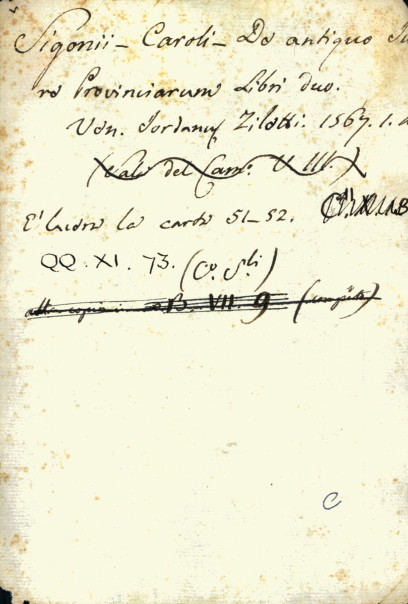 Sigonii - Caroli - De antiquo Ju
re Provinciarum Libri duo.
Ven. Jordanus Ziletti. 1567. 1.
(Vale del Cam. V III.)
carte 51-52.
QQ. XI. 73. (Co. S.li)
altra copia in B. VII. 9 (compiuta)
C